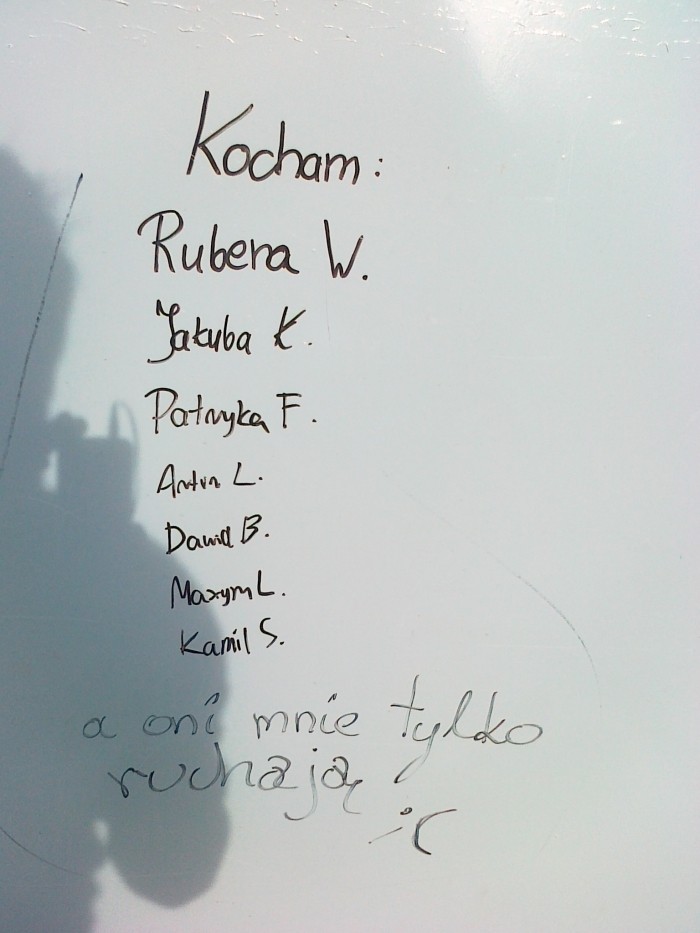 Kocham:
Rubena W.
Jakuba K.
Patryka F.
Artur L.
Dawid B.
Maxym L.
Kamil S.
a oni mnie tylko
ruchają
;(